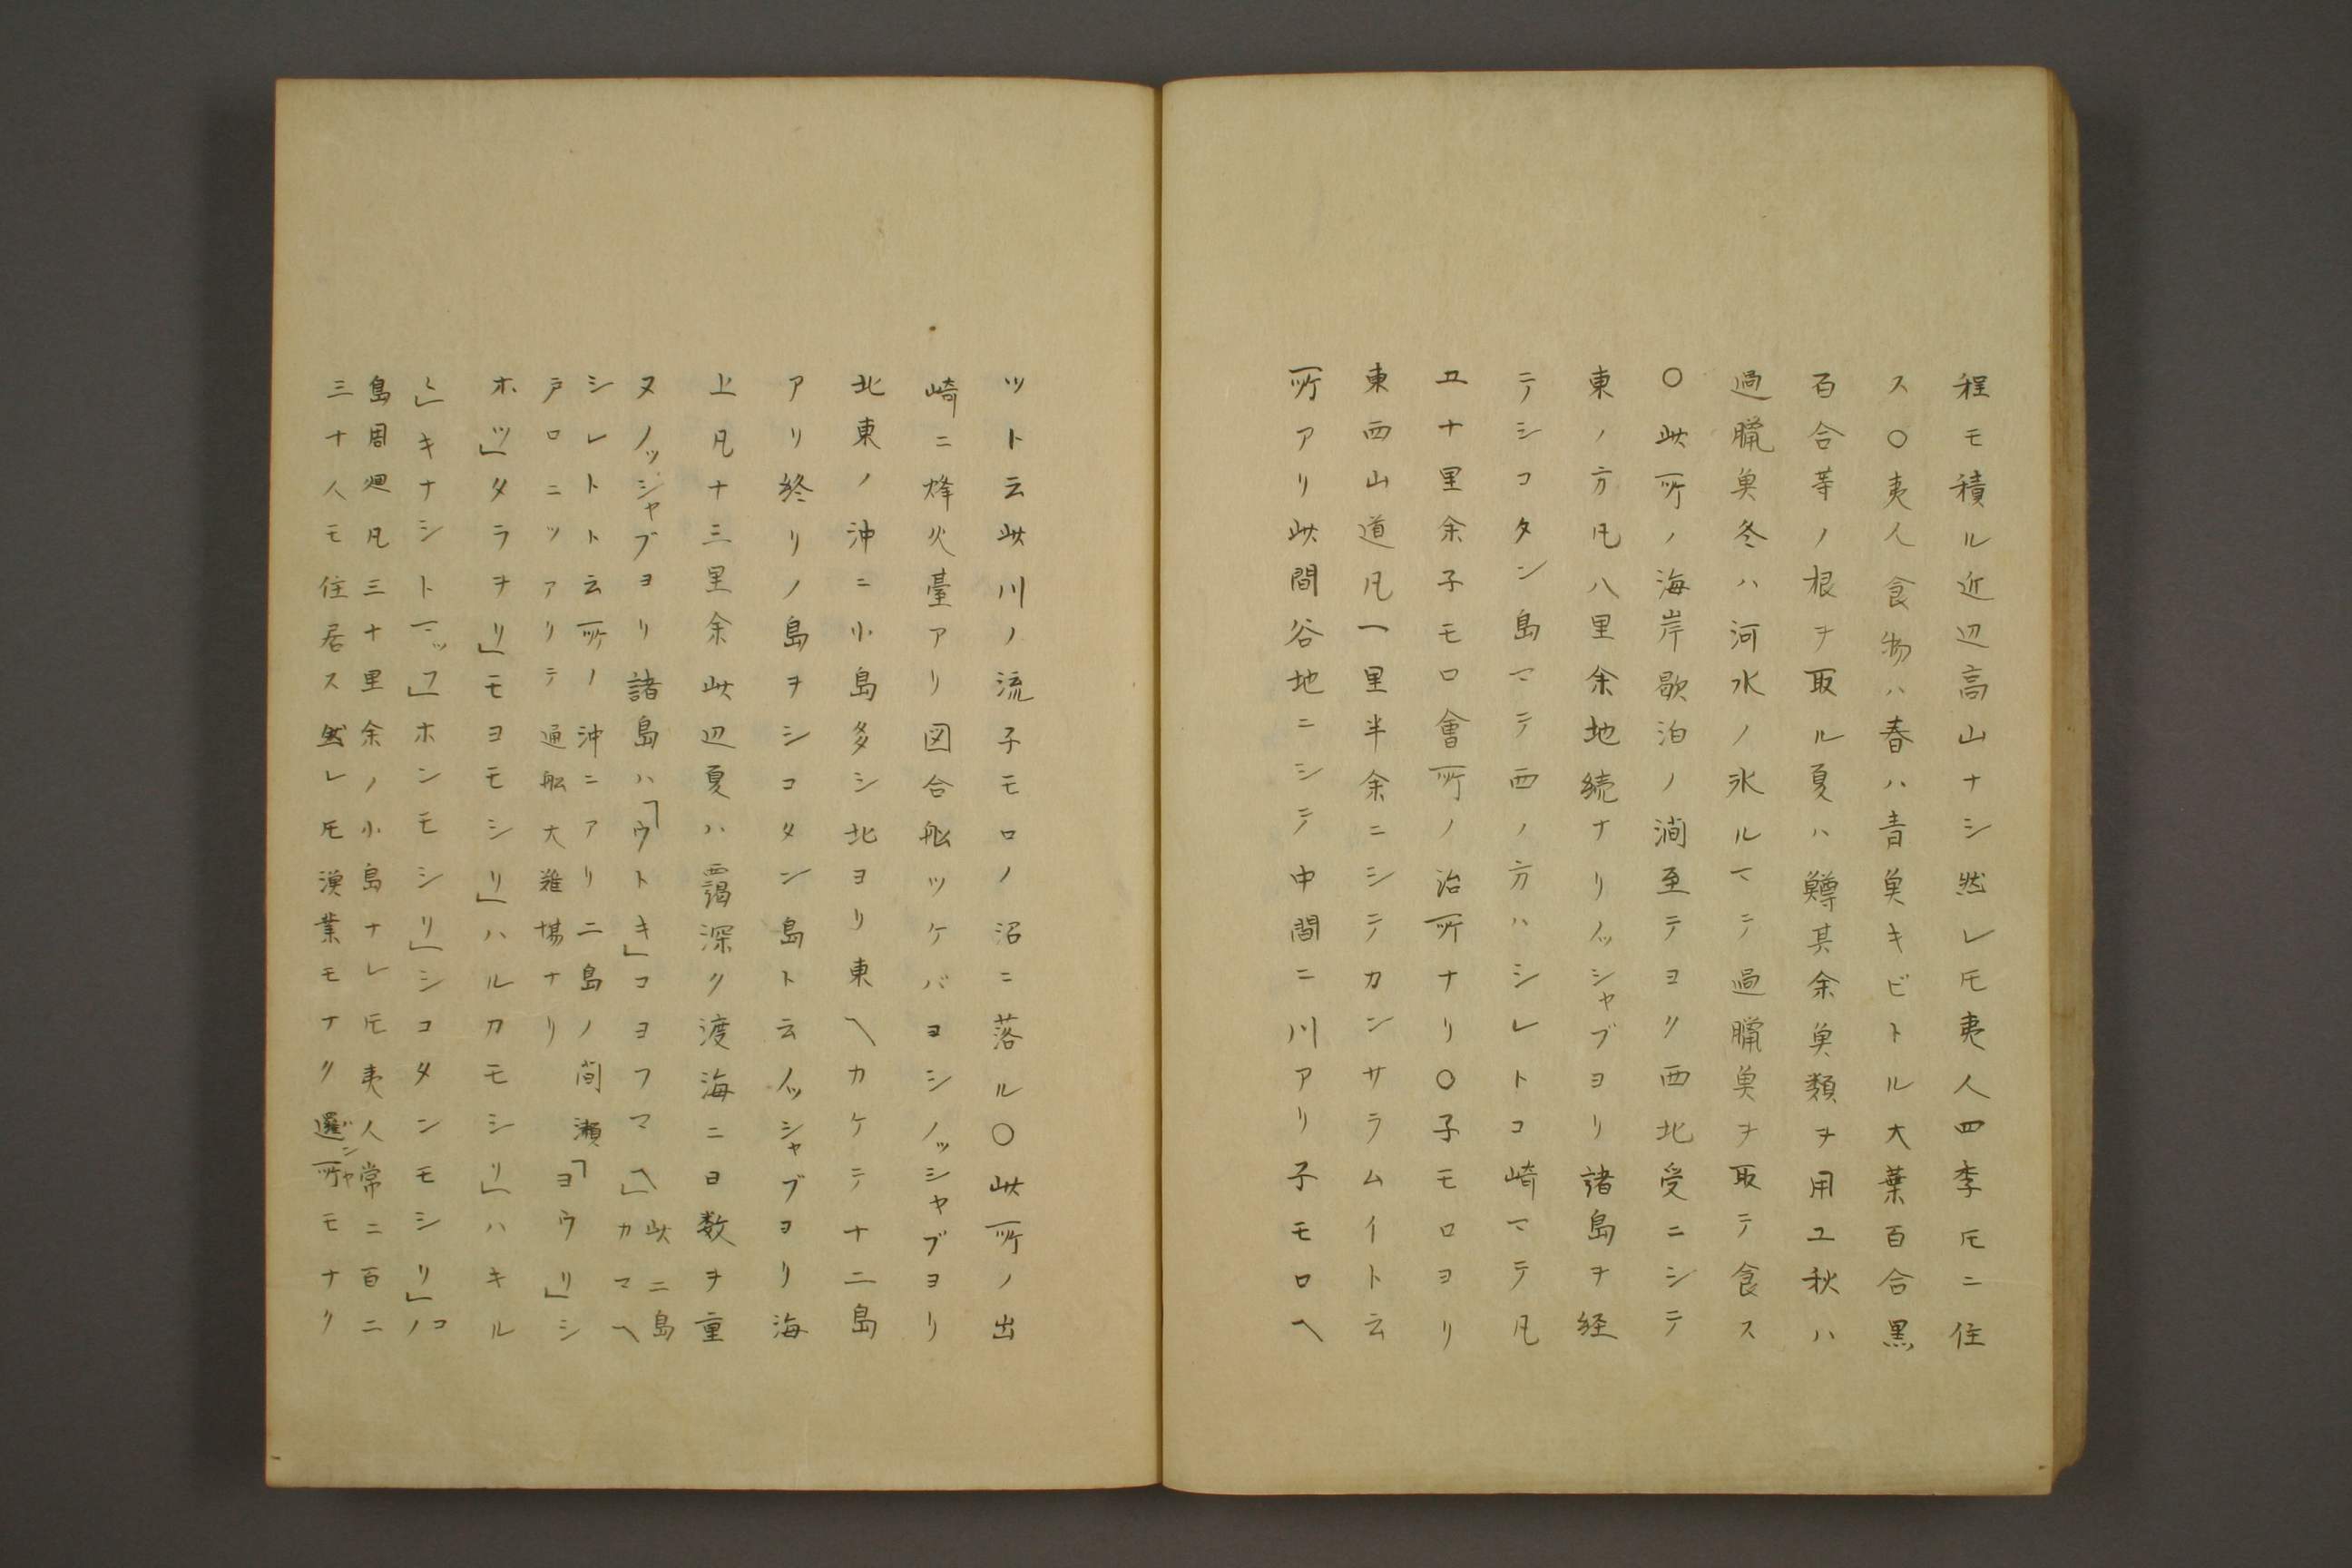 程モ積ル近辺高山ナシ然レ𪜈夷人四季𪜈ニ住
ス〇夷人食物ハ春ハ青魚キビトル大葉百合黒
百合等ノ根ヲ取ル夏ハ鱒其余魚類ヲ用ユ秋ハ
過臘魚冬ハ河水ノ氷ルマテ過臘魚ヲ取テ食ス
〇此所ノ海岸歇泊ノ澗至テヨク西北受ニシテ
東ノ方凡八里余地続ナリノッシャブヨリ諸島ヲ経
テシコタン島マテ西ノ方ハシレトコ崎マテ凡
五十里余子モロ會所ノ治所ナリ〇子モロヨリ
東西山道凡一里半余ニシテカンサラムイト云
所アリ此間谷地ニシテ中間ニ川アリ子モロヘ
ツト云此川ノ流子モロノ沼ニ落ル〇此所ノ出
崎ニ烽火臺アリ図合船ツケバヨシノッシャブヨリ
北東ノ沖ニ小島多シ北ヨリ東ヘカケテ十二島
アリ終リノ島ヲシコタン島ト云ノッシャブヨリ海
上凡十三里余此辺夏ハ靄深ク渡海ニ日数ヲ重
ヌノッシャブヨリ諸島ハ「ウトキ」コヨフマヘ」此二島
カマヘ
シレトト云所ノ沖ニアリ二島ノ間瀬
戸ロニツアリテ通船大難場ナリ
「ヨウリ」シ
ホツ」タラヲリ」モヨモシリ」ハルカモシリ」ハキル
ヽ」キナシトマッフ」ホンモシリ」シコタンモシリ」コノ
島周廻凡三十里余ノ小島ナレ𪜈夷人常ニ百二
三十人モ住居ス然レ𪜈漁業モナク運所モナク